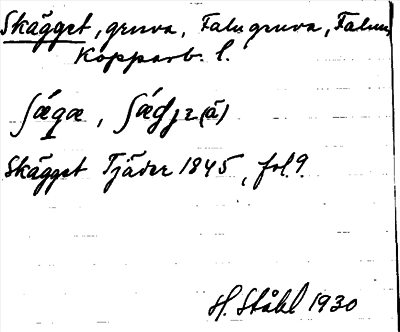 Skägget, gruva, Falu gruva, Falun,
Kopparb. l.
(ä)
Skägget Tjäder 1845, fol. 9.
H. Ståhl 1930